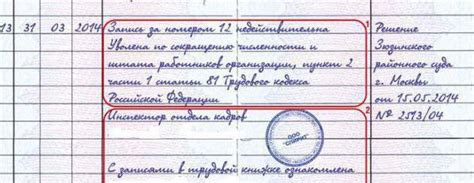 13 31 03 2014 Запись за номером 12 недействительна
Уволена по сокращению численности и
штата работников организации, пункт 2
части 1 статьи 81 Трудового кодекса
Российской Федерации
1
Решение
Зюзинского
районного суда
г. Москвы
от 15.05.2014
№ 2513/04
Инспектор отдела кадров
2
ООО
С записями в трудовой книжке ознакомлена